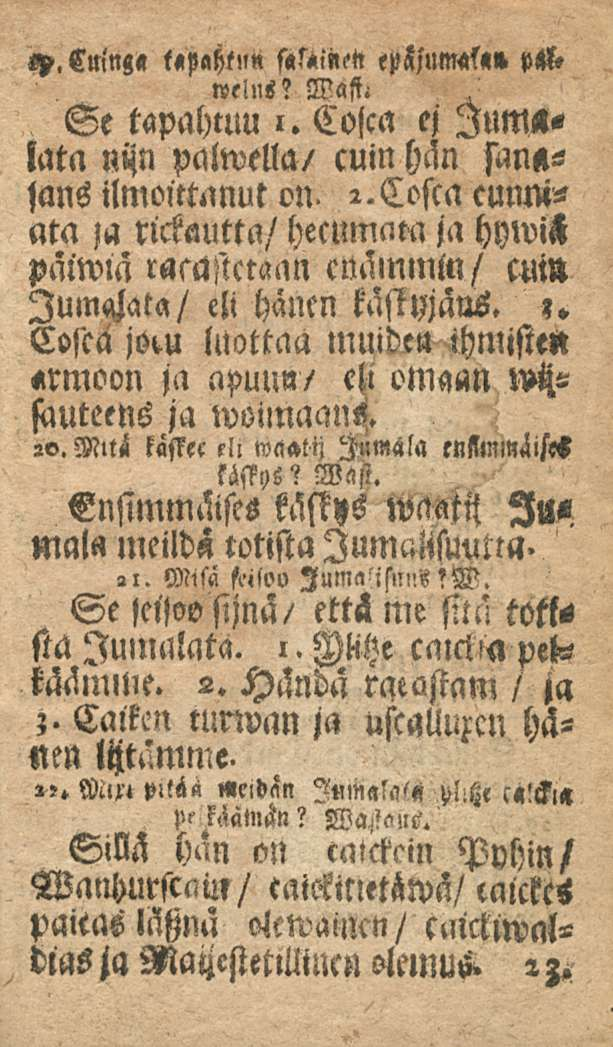 19. Cuinga tapahtuu salainen epäjumalan pal-
welus? Wast.
Se tapahtuu 1. Cosca ej Juma-
lata nijn palwella/ cuin hän sana-
sans ilmoittanut on. 2. Cosca cunni-
ata ja rickautta/ hecumata ja hywiä
päiwiä racastetaan enämmin/ cuin
Jumalata/ eli hänen käskyjäns. 3.
Cosca jocu luottaa muiden ihmisten
armoon ja apuun/ eli omaan wij-
sauteens ja woimaans.
20. Mitä käskee eli waatij Jumala ensimmäises
käskys? Wast.
Ensimmäises käskys waatij Ju-
mala meildä totista Jumalisuutta.
21. Misä seisoo Jumalisuus? W.
Se seisoo sijnä/ että me sitä totti-
sta Jumalata. 1. Ylitze caickia pel-
käämme. 2. Händä racastam/ ja
3. Caiken turwan ja uscalluxen hä-
nen lijtämme.
22. Mixi pitää meidän Jumalata ylitze caickia
pelkäämän? Wastaus.
Sillä hän on caickein Pyhin/
Wanhurscain/ caickitietäwä/ caickes
paicas läßnä olewainen/ caickiwal-
dias ja Maijestetillinen olemus. 23.